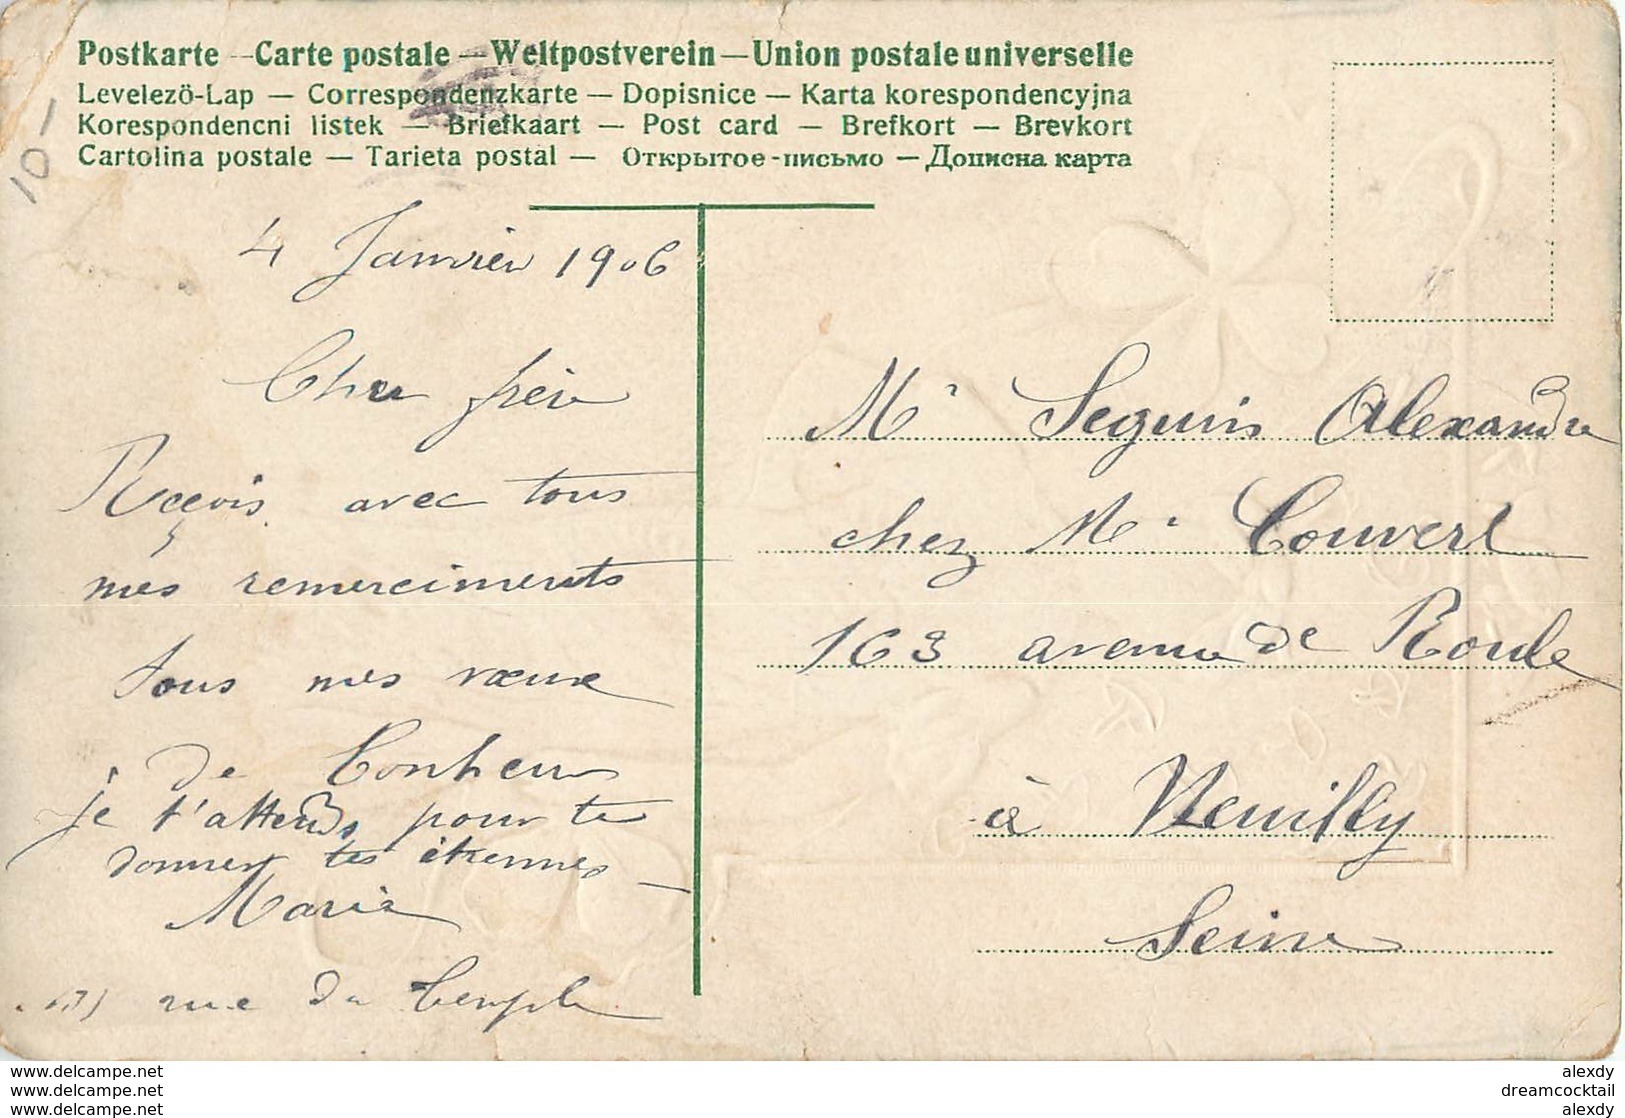 Postkarte — Carte postale — Weltpostverein — Union postale universelle
Levelezö-Lap — Correspondenzkarte — Dopisnice — Karta korespondencyjna
Korespondencni listek — Briefkaart — Post card — Brefkort — Brevkort
Cartolina postale — Tarieta postal — Открытое-письмо — Дописна карта
10-
4 Janvier 1906
Cher frère
Reçois avec tous
mes remerciements
tous mes voeux
de bonheur
je t'attends pour te
donner tes étrennes
Marie
rue du temple
Mr Seguin Alexandre
chez Mr Couvert
163 avenue de Roule
à Neuilly
Seine
www.delcampe.net
www.delcampe.net
www.delcampe.net
alexdy
dreamcocktail
alexdy